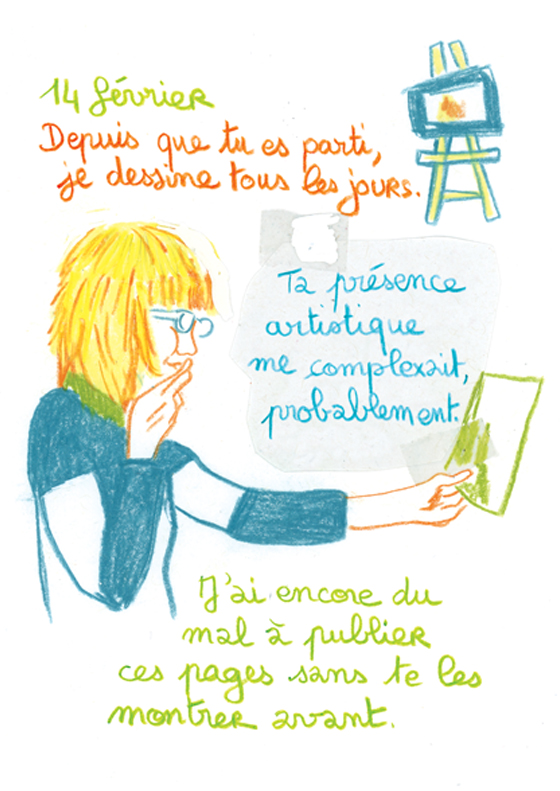 14 février
Depuis que tu es parti,
je dessine tous les jours.
Ta présence
artistique
me complexait,
probablement.
J'ai encore du
mal à publier
ces pages sans te les
montrer avant.